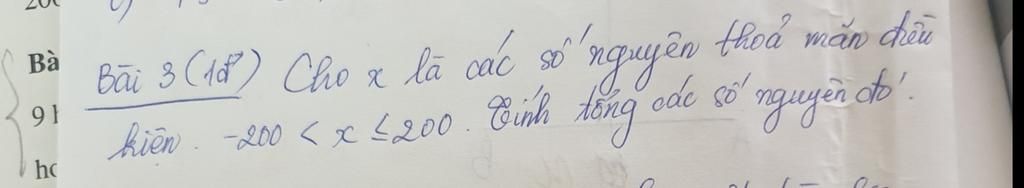 Bài 3 (1đ) Cho x là các số nguyên thoả mãn điều
Bà
9 h
kiện. -200 < x ≤ 200. Tính tổng các số nguyên đó.
họ